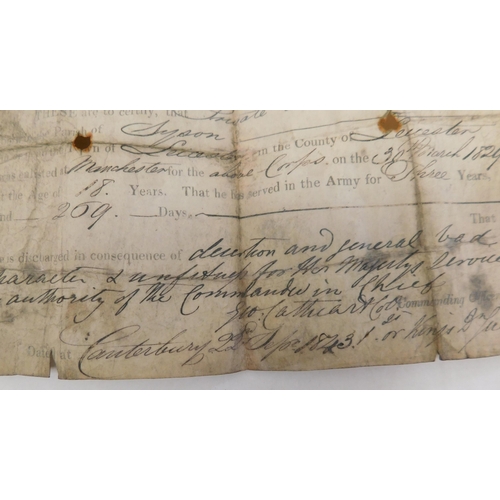 THESE are to certify, that Private
Parish of Syson in the County of Leicester
Town of Leicester
was enlisted at Manchester for the above Corps, on the 30th March 18
the Age of 18. Years. That he has served in the Army for Three Years,
269. Days. That
is discharged in consequence of desertion and general bad
Character & unfitness for Her Majesty's Service
authority of the Commander in Chief
Geo. Cathcart Col Commanding
Dated at Canterbury 22 1843. 1st or Kings Dn